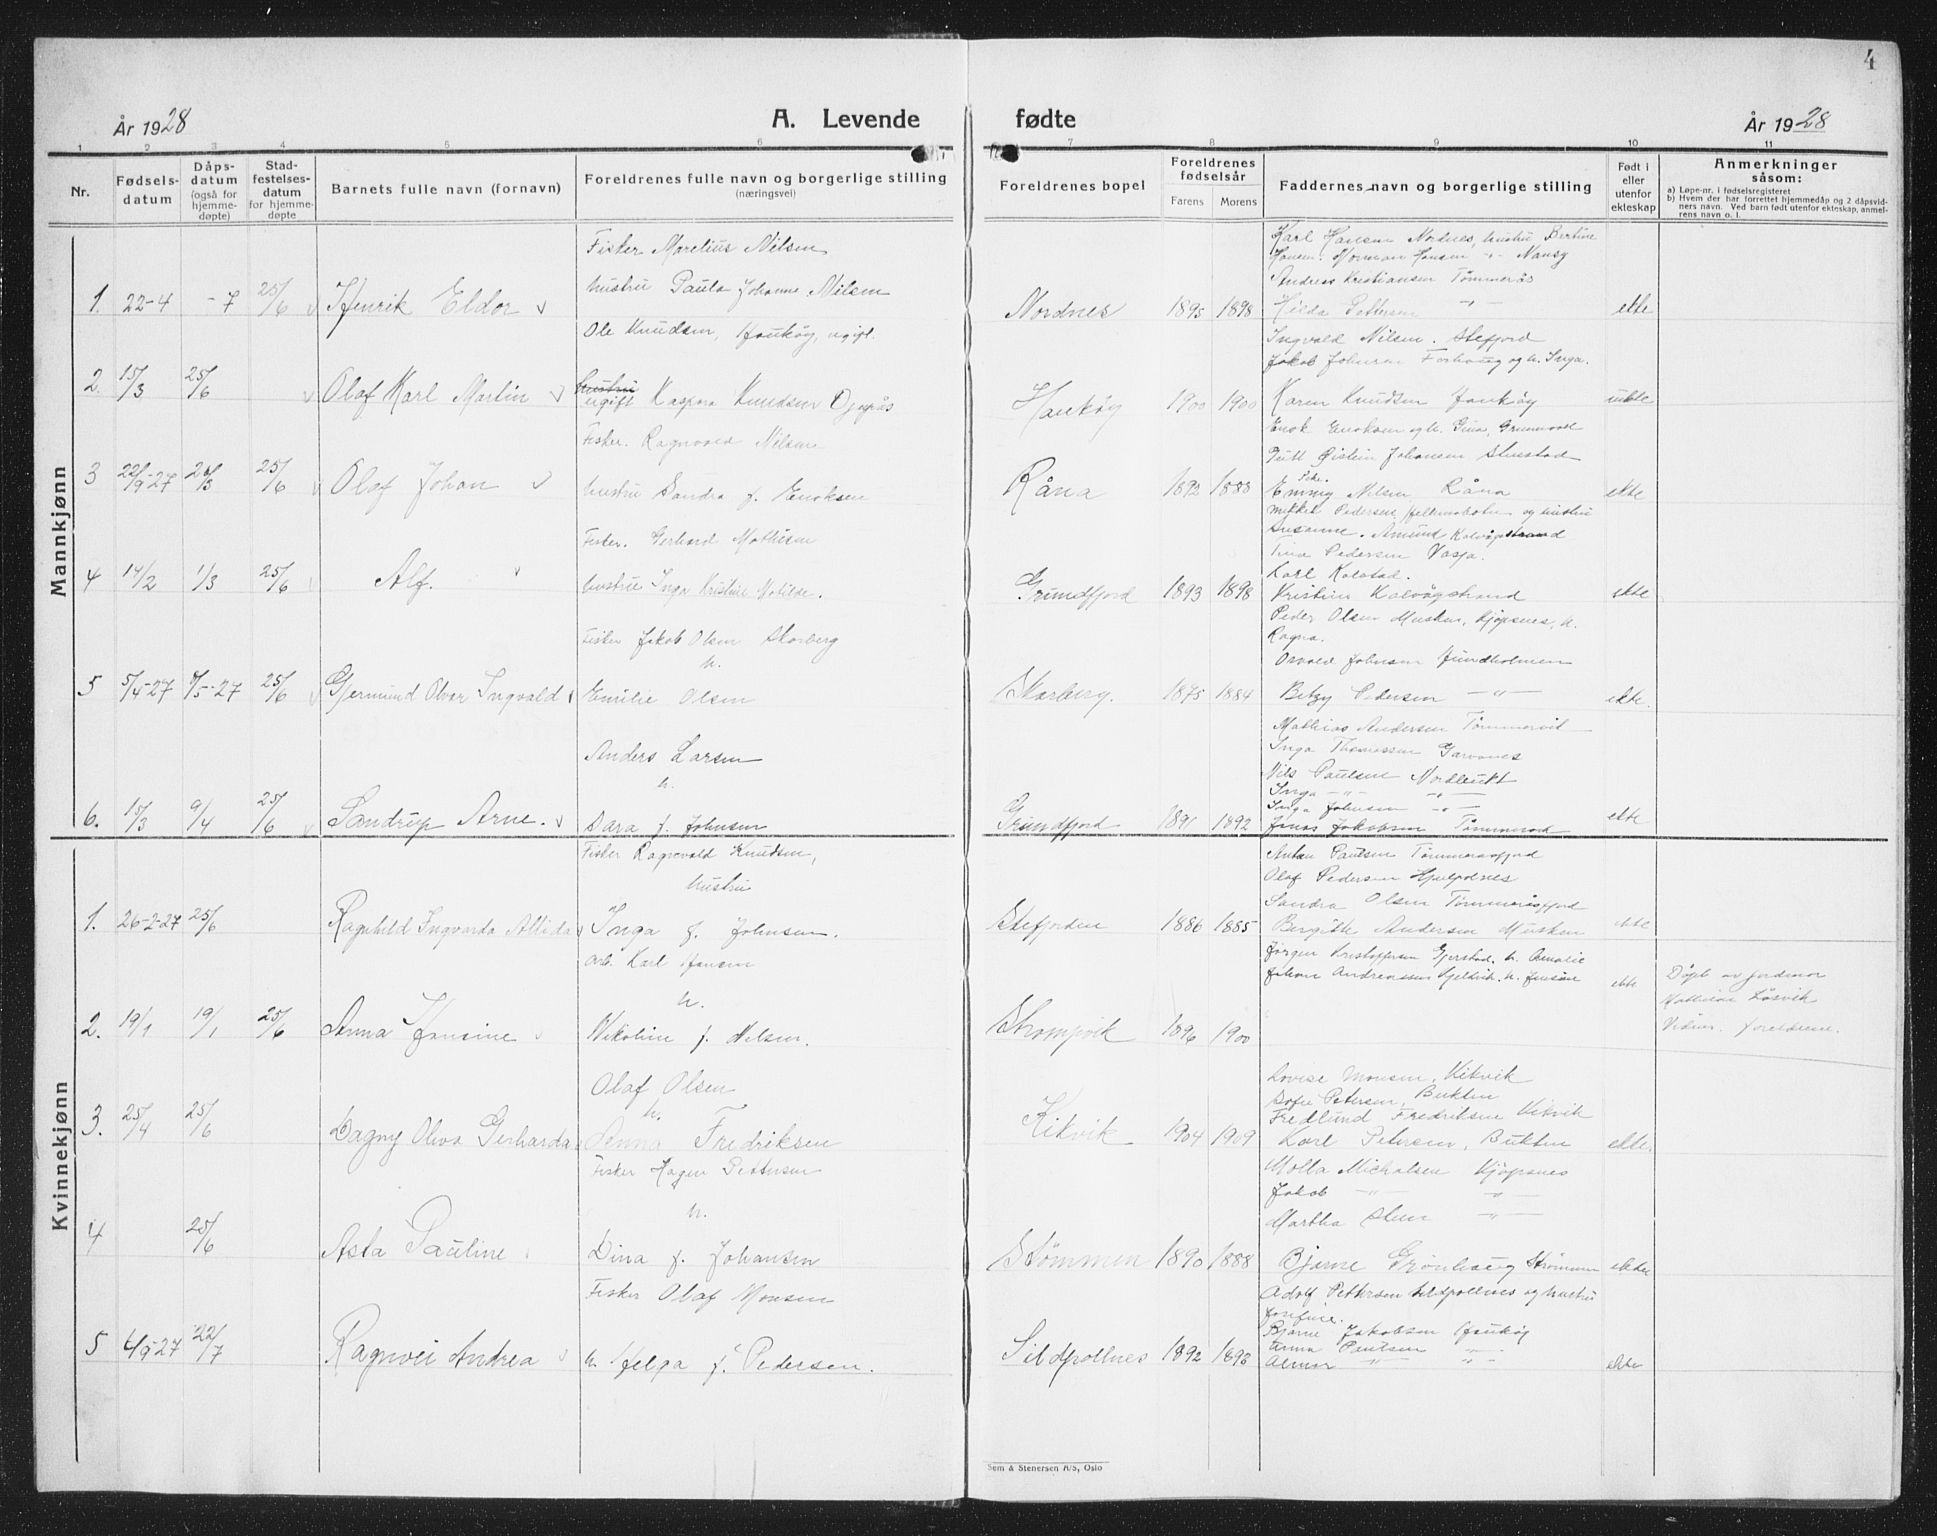 4
År 1928 A. Levende fødte År 1928
1 2 3 4 5 6 7 8 9 10 11
Nr.
Fødselsdatum
Dåpsdatum (også for hjemmedøpte)
Stadfestelsesdatum for hjemmedøpte
Barnets fulle navn (fornavn)
Foreldrenes fulle navn og borgerlige stilling (næringsvei)
Foreldrenes bopel
Foreldrenes fødselsår
Farens Morens
Faddernes navn og borgerlige stilling
Født i eller utenfor ekteskap
Anmerkninger såsom:
a) Løpe-nr. i fødselsregisteret
b) Hvem der har forrettet hjemmedåp og 2 dåpsvidners navn. Ved barn født utenfor ekteskap, anmelrens navn o. l.
Mannkjønn
Fisker Marelius Nilsen
1. 22-4 -7 25/6 Henrik Eldor hustru Paula Johanne Nilsen Nordnes 1895 1898 ekte
Karl Hansen Nordnes, hustru Bertine
Hansen. Norman Hansen -"- Nansy
Andreas Kristiansen Tømmerås
Hilda Pettersen -"-
Ole Knudsen, Haukøy, ugift.
2. 15/3 25/6 Olaf Karl Martin ugift Kaspara Knudsen Haukøy 1900 1900 uekte
Ingvald Nilsen. Stefjord
Jakob Johnsen og h. Inga.
Karen Knudsen Haukøy
Enok Enoksen og h. Gina,
Fisker. Ragnvald Nilsen
3 22/9-27 25/6 Olaf Johan hustru Sandra f. Enoksen Råna 1892 1888 ekte
Øistein Johansen
Emmy Nilsen Råna
Mikkel Pedersen og hustru
Susanne. Amund
Fisker. Gerhard Mathisen
4 14/2 1/3 25/6 Alf. hustru Inga Kristine Matilde. Grundfjord 1893 1898 ekte
Tina Pedersen
Karl Kolstad.
Kristine
Peder Olsen Musken, Kjøpsnes, h.
Ragna.
Fisker Jakob Olsen Skarberg
h.
5 5/4-27 25/6 Gjermund Alvar Ingvald Emilie Olsen Skarberg. 1875 1884 ekte.
Osvald Johnsen Hundholmen
Betzy Pedersen -"-
Mathias Andersen
Inga Thomassen
Anders Larsen
h.
6. 15/3 9/4 25/6 Sandrup Arne. Sara f. Johnsen Grundfjord 1891 1892 ekte
Nils Paulsen Nordbukt
Inga -"- -"-
Inga Johnsen -"-
Jonas Jakobsen
Kvinnekjønn
Fisker Ragnvald Knudsen,
hustru
1. 26-2-27 25/6 Ragnhild Ingvarda Alfida Inga f. Johnsen. Stefjorden 1886 1885 ekte
Anton Paulsen Tømmeråsfjord
Olaf Pedersen
Sandra Olsen Tømmeråsfjord
Birgitte Andersen Musken
Arb. Karl Hansen
h.
2. 19/1 19/1 25/6 Anna Hansine Nikoline f. Nilsen. 1896 1900 ekte
Jørgen Kristoffersen Gjerstad. h. Amalie
Johan Andreassen
Døpt av jordmor
Mathilde Løsvik
foreldrene.
Olaf Olsen
h.
3. 25/4 25/6 Dagny Oliva Gerharda Anna Fredriksen Kikvik 1904 1909 ekte.
Lovise Monsen, Kikvik
Sofie Petersen, Bukten
Fredlund Fredriksen Kikvik
Karl Petersen, Bukten
Fisker Hagen Pettersen
h.
4 25/6 Asta Pauline Dina f. Johansen Strømmen 1890 1888 ekte
Molla Michalsen Kjøpsnes
Jakob -"- -"-
Martha Steen -"-
Bjarne Grønhaug Strømmen
Fisker Olaf Monsen
5 4/9-27 22/7 Ragnvei Andrea h. Helga f. Pedersen. Sildpollnes 1892 1893 ekte
Adolf Pettersen Sildpollnes og hustru
Josefine.
Bjarne Jakobsen Haukøy
Anna Paulsen -"-
-"- -"-
Sem & Stenersen A/S, Oslo